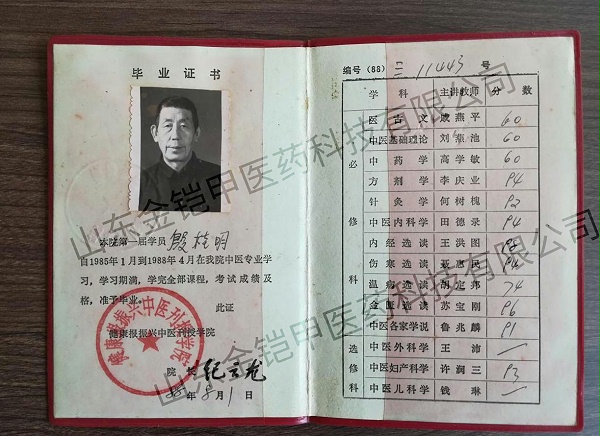 毕业证书
本院第一届学员 殷桂明
自1985年1月到1988年4月在我院中医专业学
习，学习期满，学完全部课程，考试成绩及
格，准予毕业。
此证
健康报振兴中医刊授学院
院长
1988年8月1日
健康报振兴中医刊授学院
编号（88）二 11443 号
学科 主讲教师 分数
必修科
医古文 成燕平 60
中医基础理论 刘燕池 60
中药学 高学敏 60
方剂学 李庆业 84
针灸学 何树槐 82
中医内科学 田德录 84
内经选读 王洪图
伤寒选读 聂惠民
温病选读 胡定邦 74
金匮选读 苏宝刚 86
中医各家学说 鲁兆麟 81
选修科
中医外科学 王沛 —
中医妇产科学 许润三 83
中医儿科学 钱琳 —
山东金铠甲医药科技有限公司
山东金铠甲医药科技有限公司